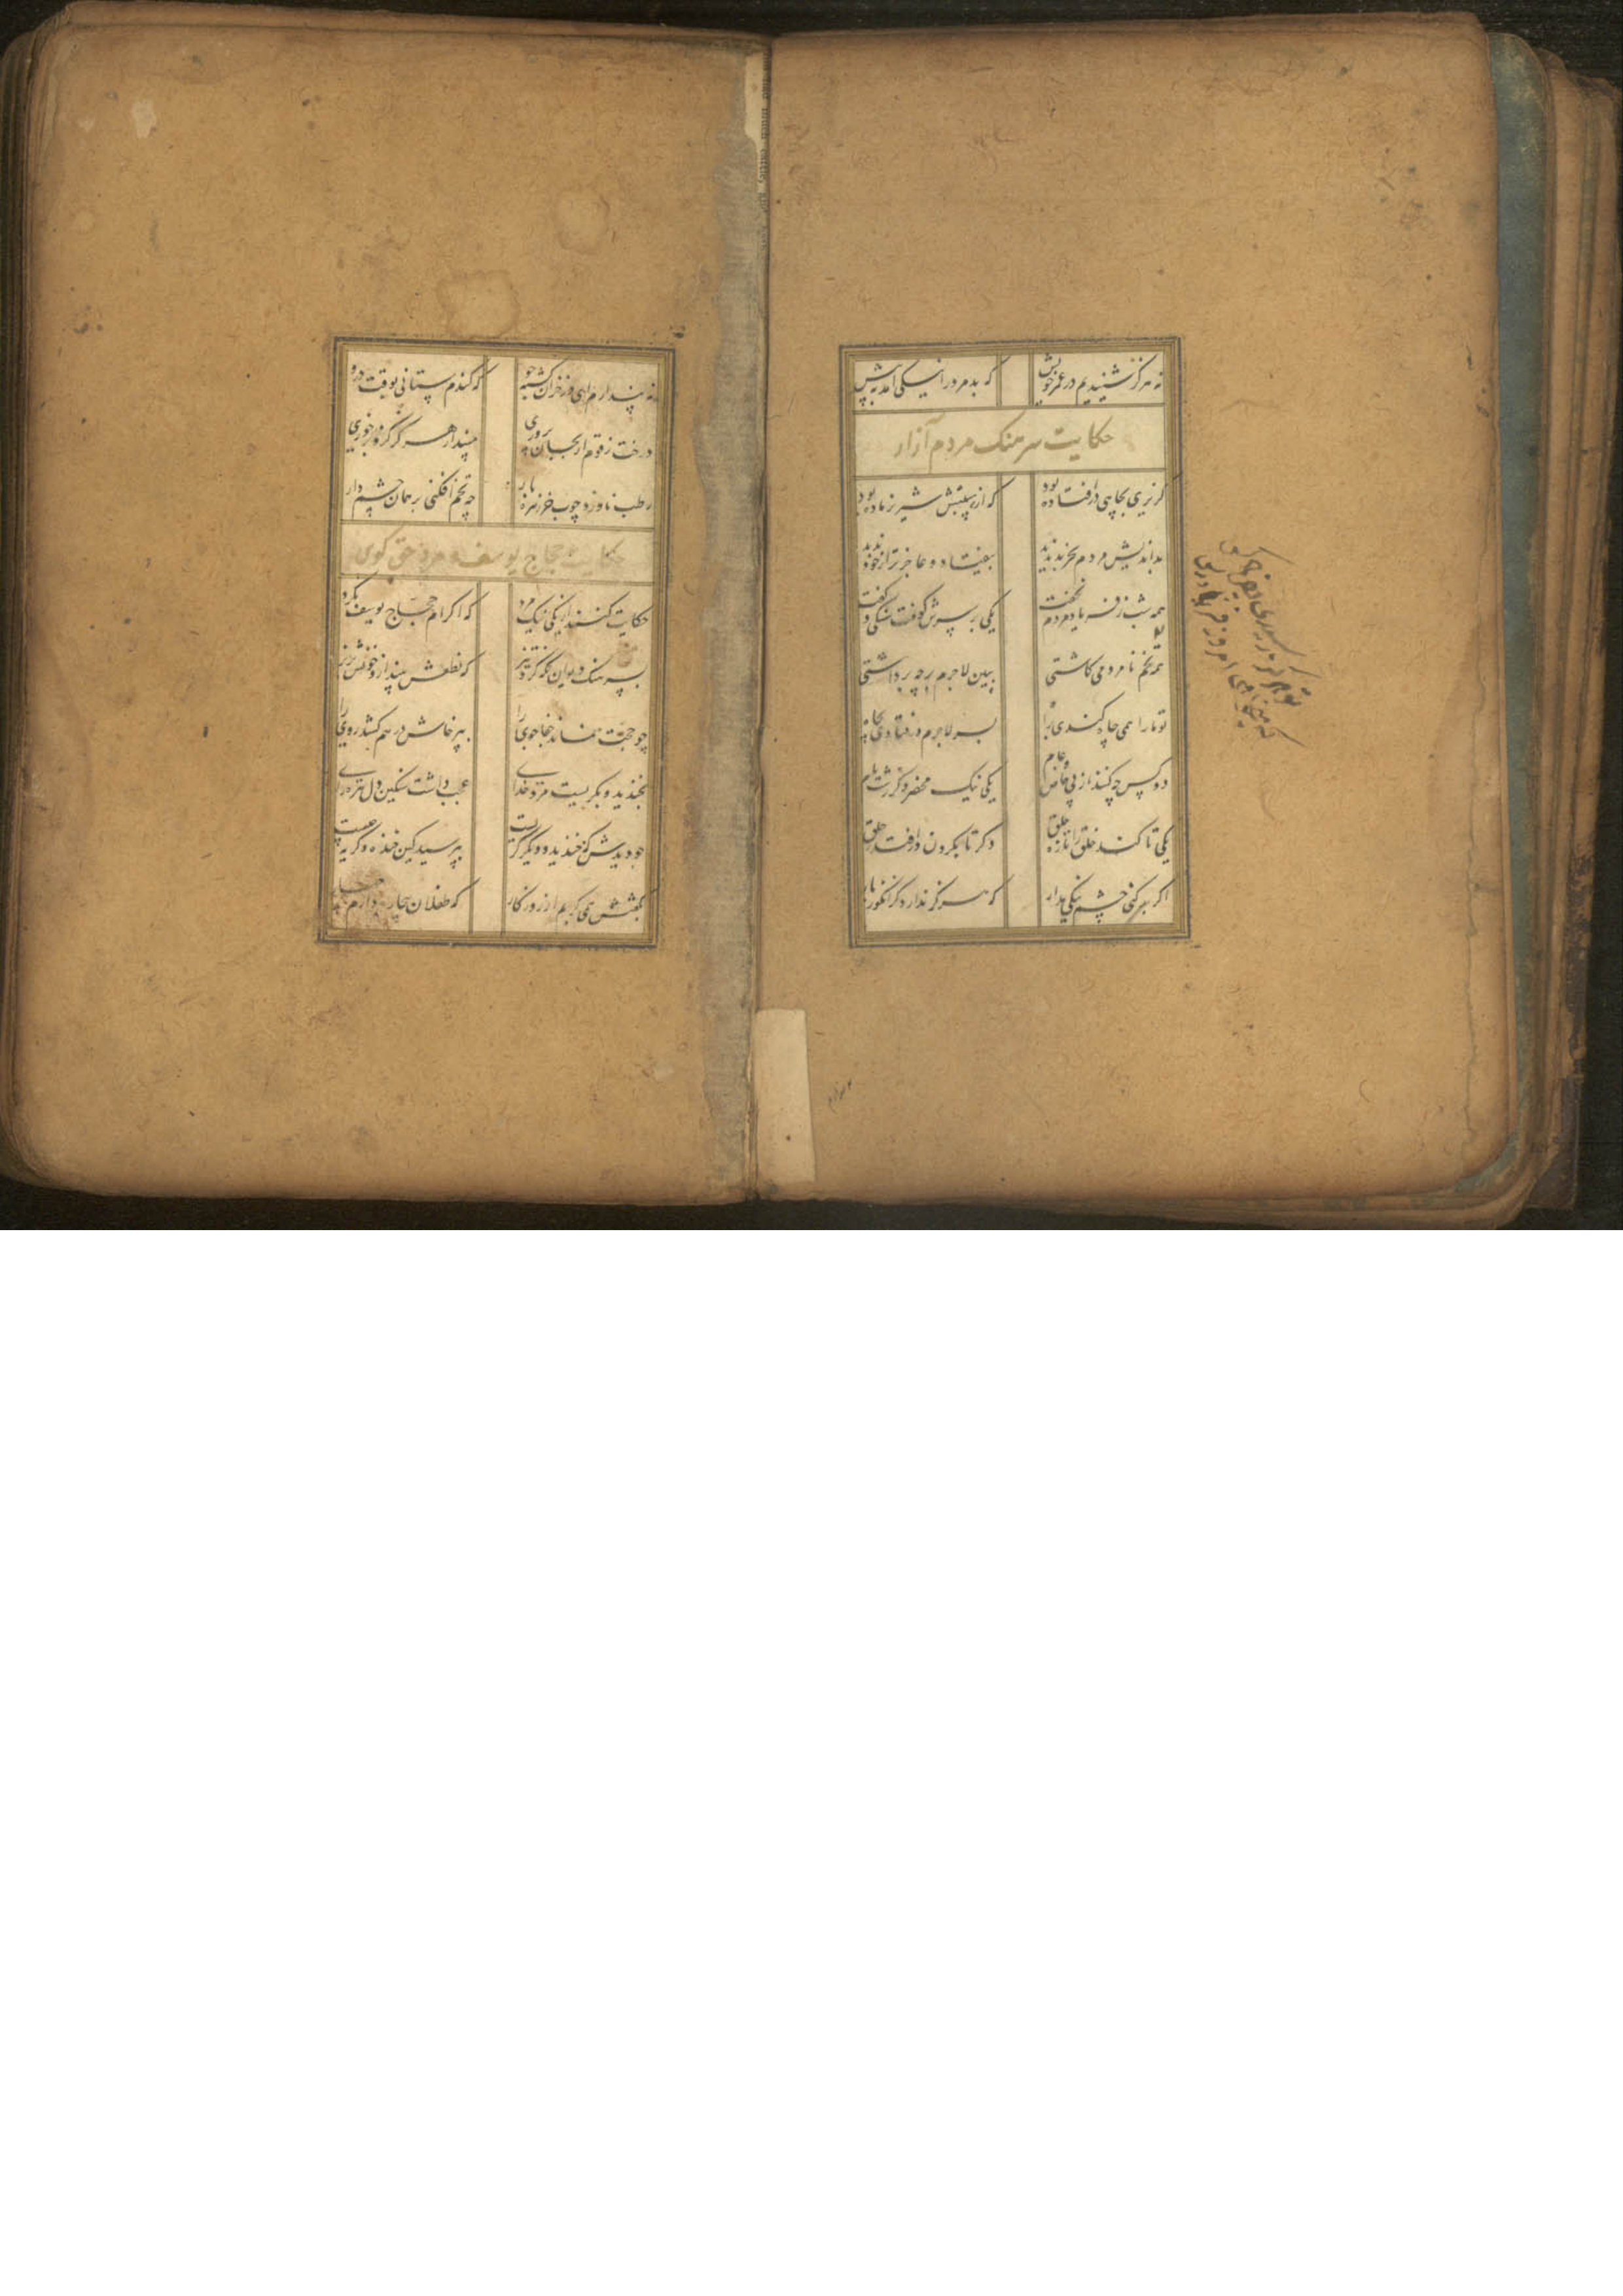 نه هرگز شنیدیم در عمر خویش که بد مرد را نیکی آمد به پیش
حکایت سرهنک مردم آزار
گزیری بچاهی در افتاده بود که از هیبتش شیر نر ماده بود
بد اندیش مردم بجز بد ندید بیفتاد و عاجزتر از خود ندید
همه شب ز فریاد مردم نخفت یکی بر سرش کوفت سنگی و گفت
همه تخم نامردمی کاشتی ببین لاجرم بر چه برداشتی
تو ما را همی چاه کندی براه بسر لاجرم در فتادی بچاه
دو کس چه کنند از پی خاص و عام یکی نیک محضر دگر زشت نام
یکی تا کند خلق را تازه حلق دگر تا بگردن در افتند خلق
اگر بد کنی چشم نیکی مدار که هرگز ندارد گز انگور بار
تو هرگز رسیدی بفریاد کس
که میخواهی امروز فریادرس
نه پندارم ای در خزان کشته جو که گندم ستانی بوقت درو
درخت زقوم ار بجان پروری مپندار هرگز کزو بر خوری
رطب ناورد چوب خرزهره بار چه تخم افکنی بر همان چشم دار
حکایت حجاج یوسف و مرد حق گوی
حکایت کنند از یکی نیک مرد که اکرام حجاج یوسف نکرد
بسرهنک دیوان نگه کرد تیز که نطعش بینداز و خونش بریز
چو حجت نماند جفا جوی را بپرخاش در هم کشد روی را
بخندید و بگریست مرد خدای عجب داشت سنگین دل تیره رای
چو دیدش که خندید و دیگر گریست بپرسید کین خنده و گریه چیست
بگفتش همی گریم از روزگار که طفلان بیچاره دارم چهار